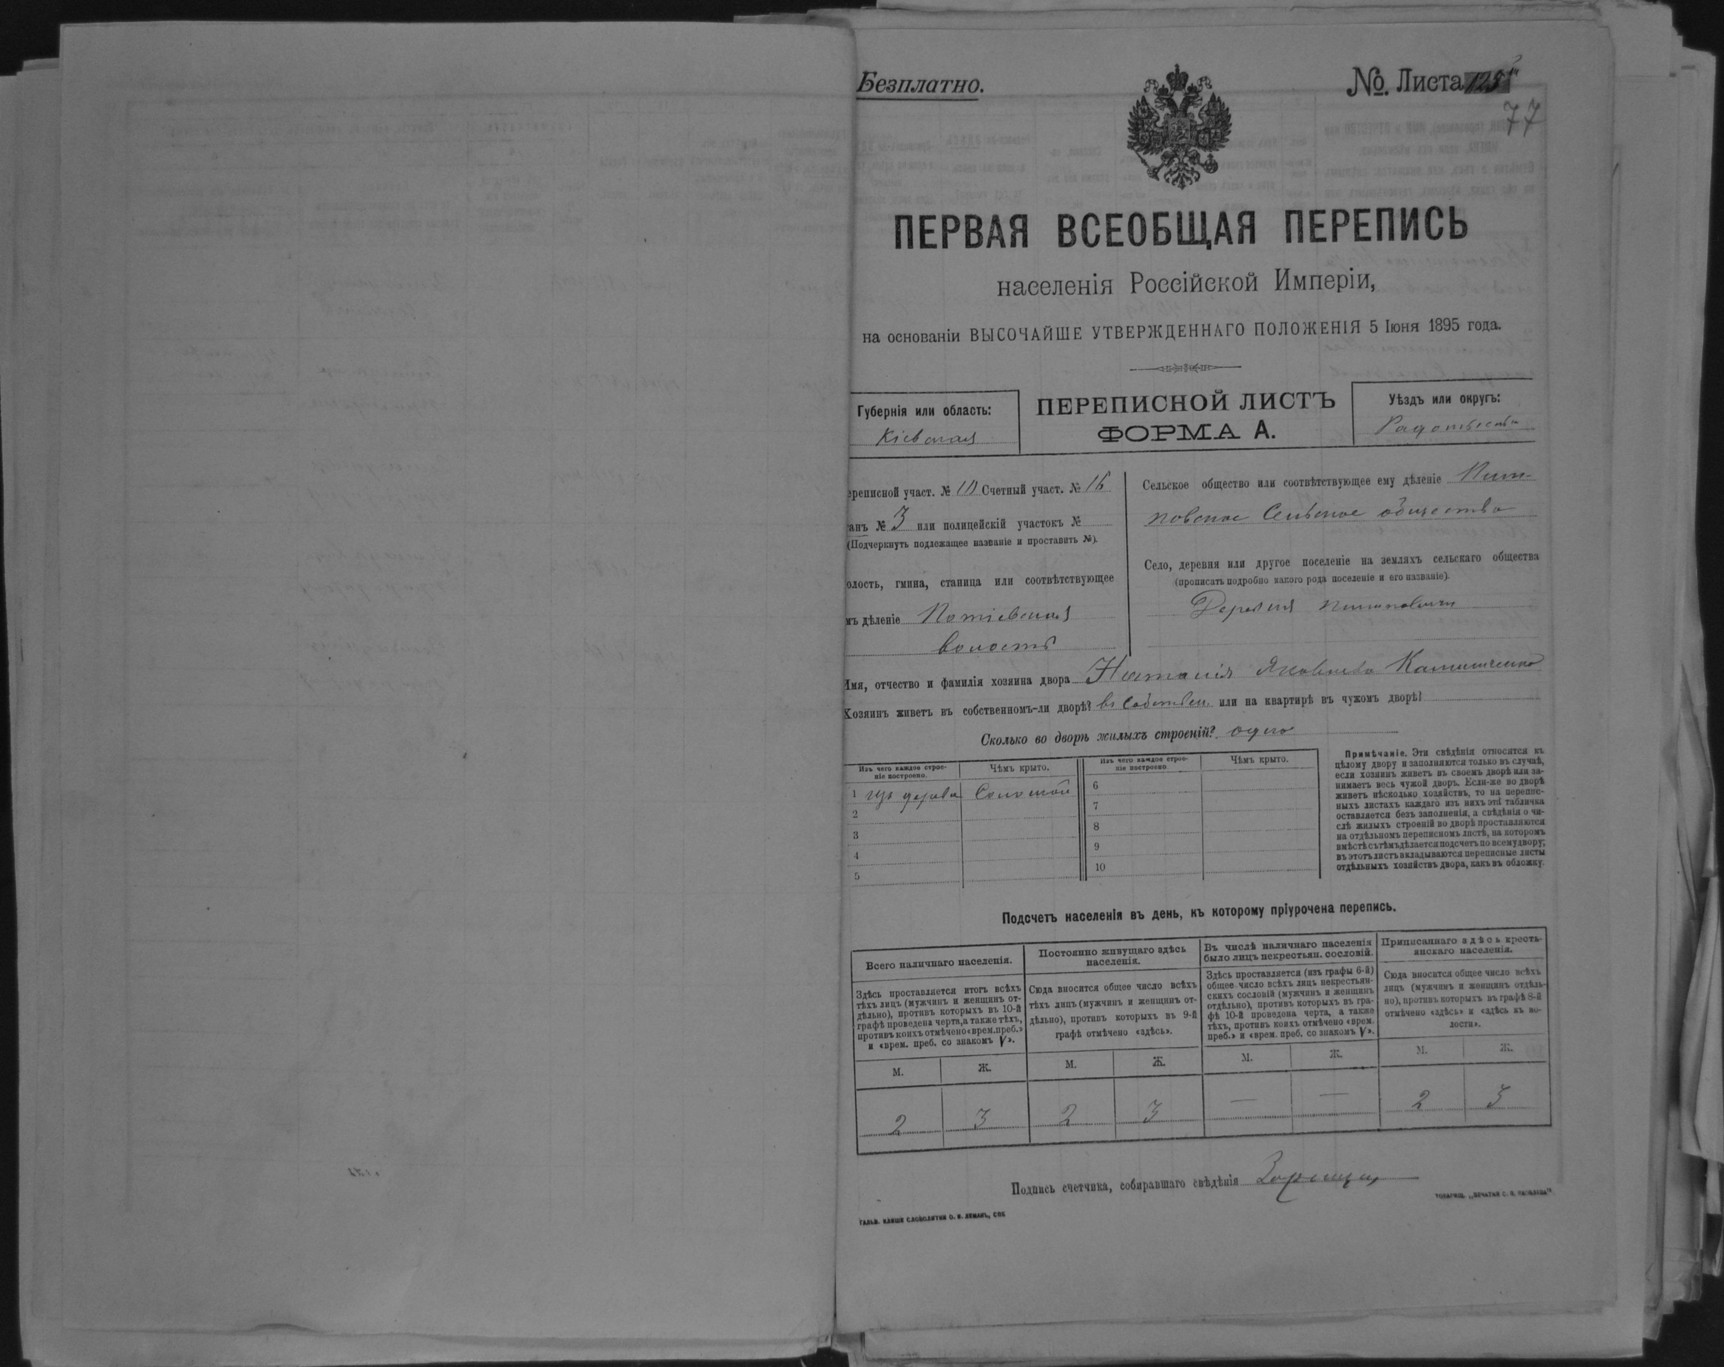 Безплатно.
№ Листа 125
77
ПЕРВАЯ ВСЕОБЩАЯ ПЕРЕПИСЬ
населенія Россійской Имперіи,
на основаніи ВЫСОЧАЙШЕ УТВЕРЖДЕННАГО ПОЛОЖЕНІЯ 5 Іюня 1895 года.
Губернія или область:
Кіевская
ПЕРЕПИСНОЙ ЛИСТЪ
ФОРМА А.
Уѣздъ или округъ:
ереписной участ. № 10 Счетный участ. № 16
анъ № 3 или полицейскій участокъ №
(Подчеркнуть подлежащее названіе и проставить №).
олость, гмина, станица или соотвѣтствующее
мъ дѣленіе Потіевская
волость
Сельское общество или соотвѣтствующее ему дѣленіе
повское Сельское общество
Село, деревня или другое поселеніе на земляхъ сельскаго общества
(прописать подробно какого рода поселеніе и его названіе).
Деревня
Имя, отчество и фамилія хозяина двора Наталія Яковлева
Хозяинъ живетъ въ собственномъ-ли дворѣ? въ Собствен. или на квартирѣ въ чужомъ дворѣ?
Сколько во дворѣ жилыхъ строеній? одно
Изъ чего каждое строе-
ніе построено.
Чѣмъ крыто.
1 изъ дерева Соломой
2
3
4
5
Изъ чего каждое строе-
ніе построено
Чѣмъ крыто.
6
7
8
9
10
Примѣчаніе. Эти свѣдѣнія относятся къ
цѣлому двору и заполняются только въ случаѣ,
если хозяинъ живетъ въ своемъ дворѣ или за-
нимаетъ весь чужой дворъ. Если-же во дворѣ
живетъ нѣсколько хозяйствъ, то на перепис-
ныхъ листахъ каждаго изъ нихъ эта табличка
оставляется безъ заполненія, а свѣдѣнія о чи-
слѣ жилыхъ строеній во дворѣ проставляются
на отдѣльномъ переписномъ листѣ, на которомъ
вмѣстѣ съ тѣмъ дѣлается подсчетъ по всему двору;
въ этотъ листъ вкладываются переписные листы
отдѣльныхъ хозяйствъ двора, какъ въ обложку.
Подсчетъ населенія въ день, къ которому пріурочена перепись.
Всего наличнаго населенія.
Здѣсь проставляется итогъ всѣхъ
тѣхъ лицъ (мужчинъ и женщинъ от-
дѣльно), противъ которыхъ въ 10-й
графѣ проведена черта, а также тѣхъ,
противъ коихъ отмѣчено «врем. преб.»
и «врем. преб. со знакомъ V».
М. Ж.
2 3
Постоянно живущаго здѣсь
населенія.
Сюда вносится общее число всѣхъ
тѣхъ лицъ (мужчинъ и женщинъ от-
дѣльно), противъ которыхъ въ 9-й
графѣ отмѣчено «здѣсь».
М. Ж.
2 3
Въ числѣ наличнаго населенія
было лицъ некрестьян. сословій.
Здѣсь проставляется (изъ графы 6-й)
общее число всѣхъ лицъ некрестьян-
скихъ сословій (мужчинъ и женщинъ
отдѣльно), противъ которыхъ въ гра-
фѣ 10-й проведена черта, а также
тѣхъ, противъ коихъ отмѣчено «врем.
преб.» и «врем. преб. со знакомъ V».
М. Ж.
— —
Приписаннаго здѣсь кресть-
янскаго населенія.
Сюда вносится общее число всѣхъ
лицъ (мужчинъ и женщинъ отдѣль-
но), противъ которыхъ въ графѣ 8-й
отмѣчено «здѣсь» и «здѣсь въ во-
лости».
М. Ж.
2 3
Подпись счетчика, собиравшаго свѣдѣнія